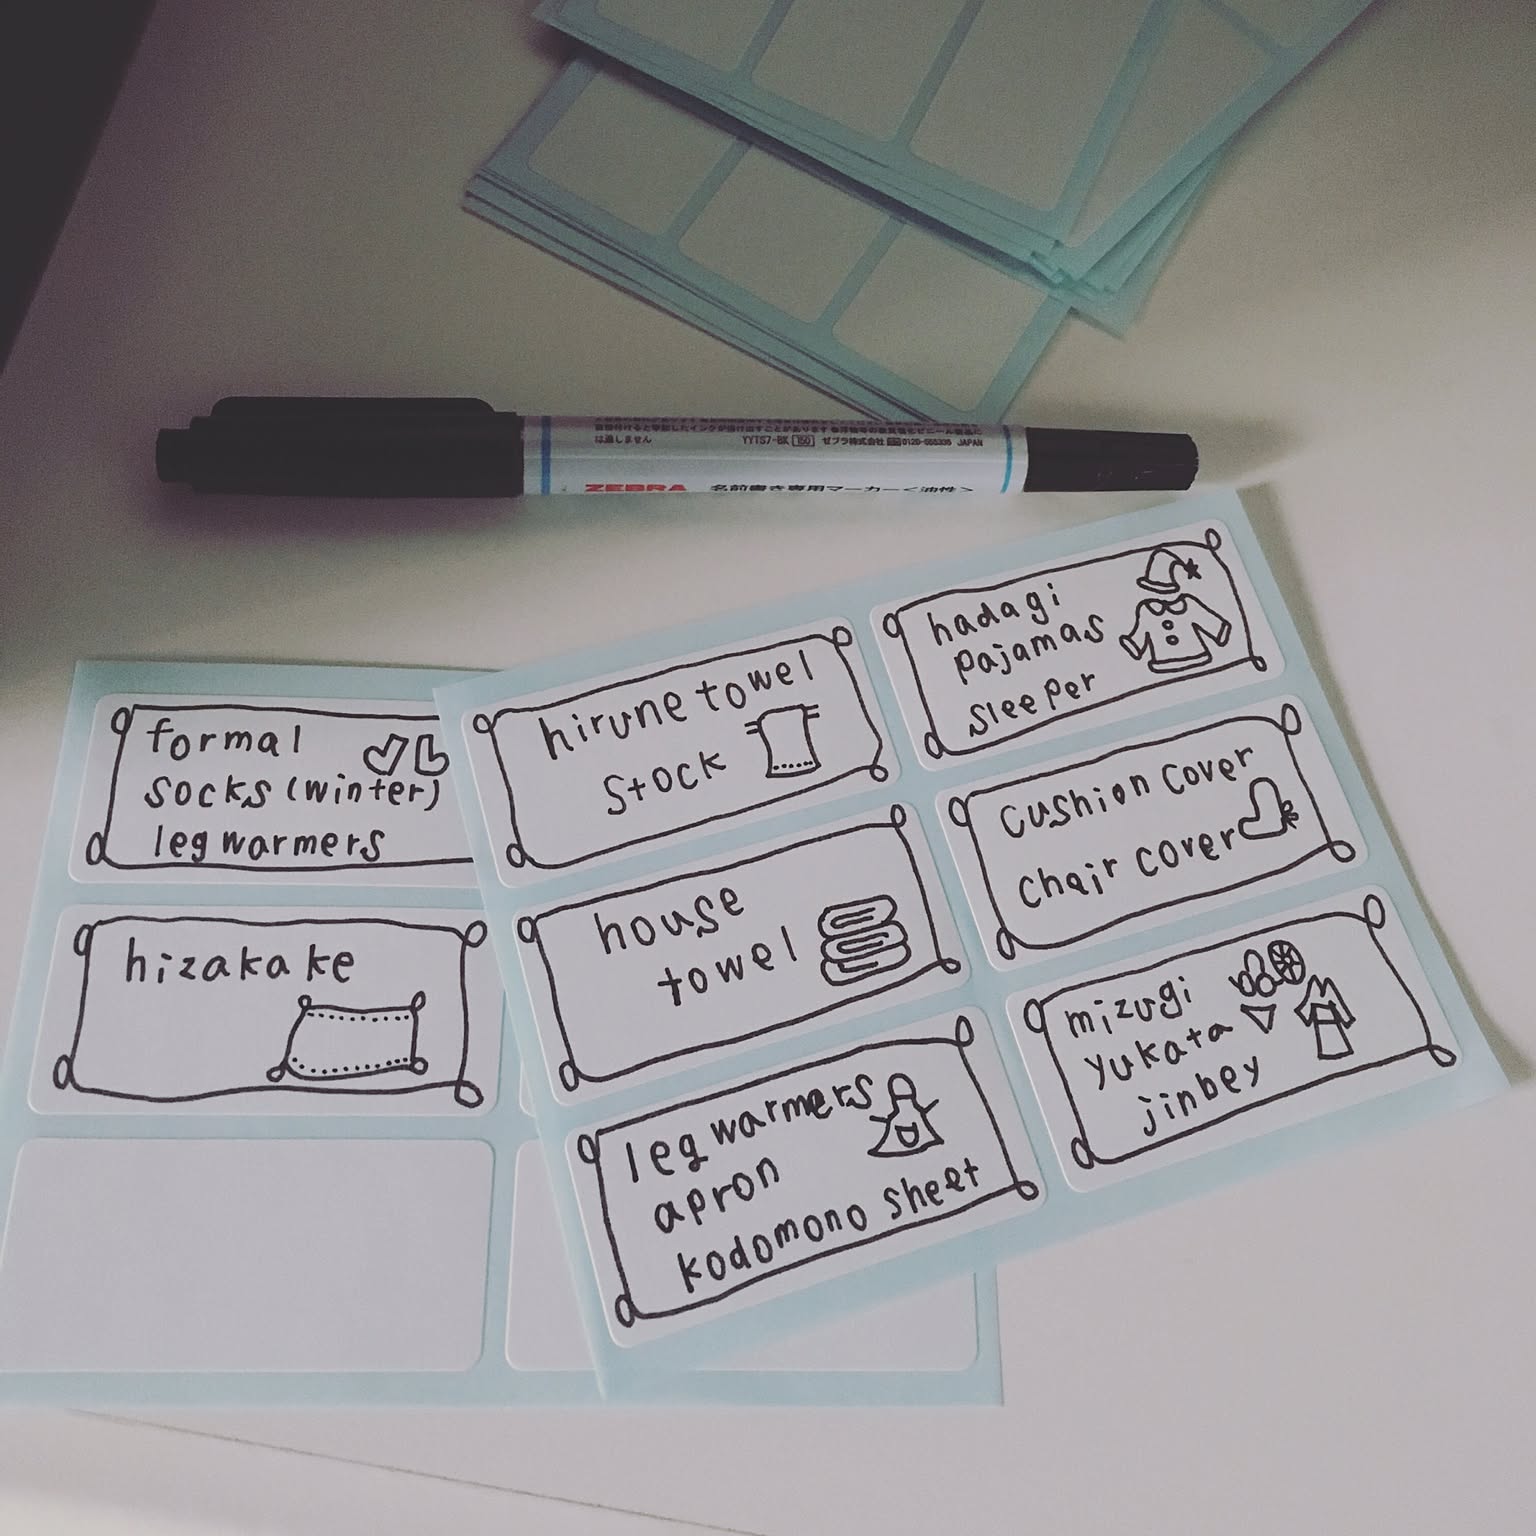 は通しません YYTS7-BK 150 ゼブラ株式会社 0120-555335 JAPAN
ZEBRA 名前書き専用マーカー<油性>
formal
socks (winter)
leg warmers
hizakake
hirune towel
stock
house
towel
leg warmers
apron
kodomono sheet
hadagi
pajamas
sleeper
cushion cover
chair cover
mizugi
yukata
jinbey